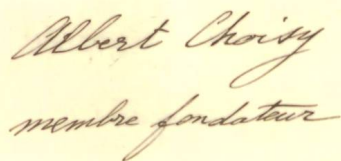 Albert Choisy
membre fondateur